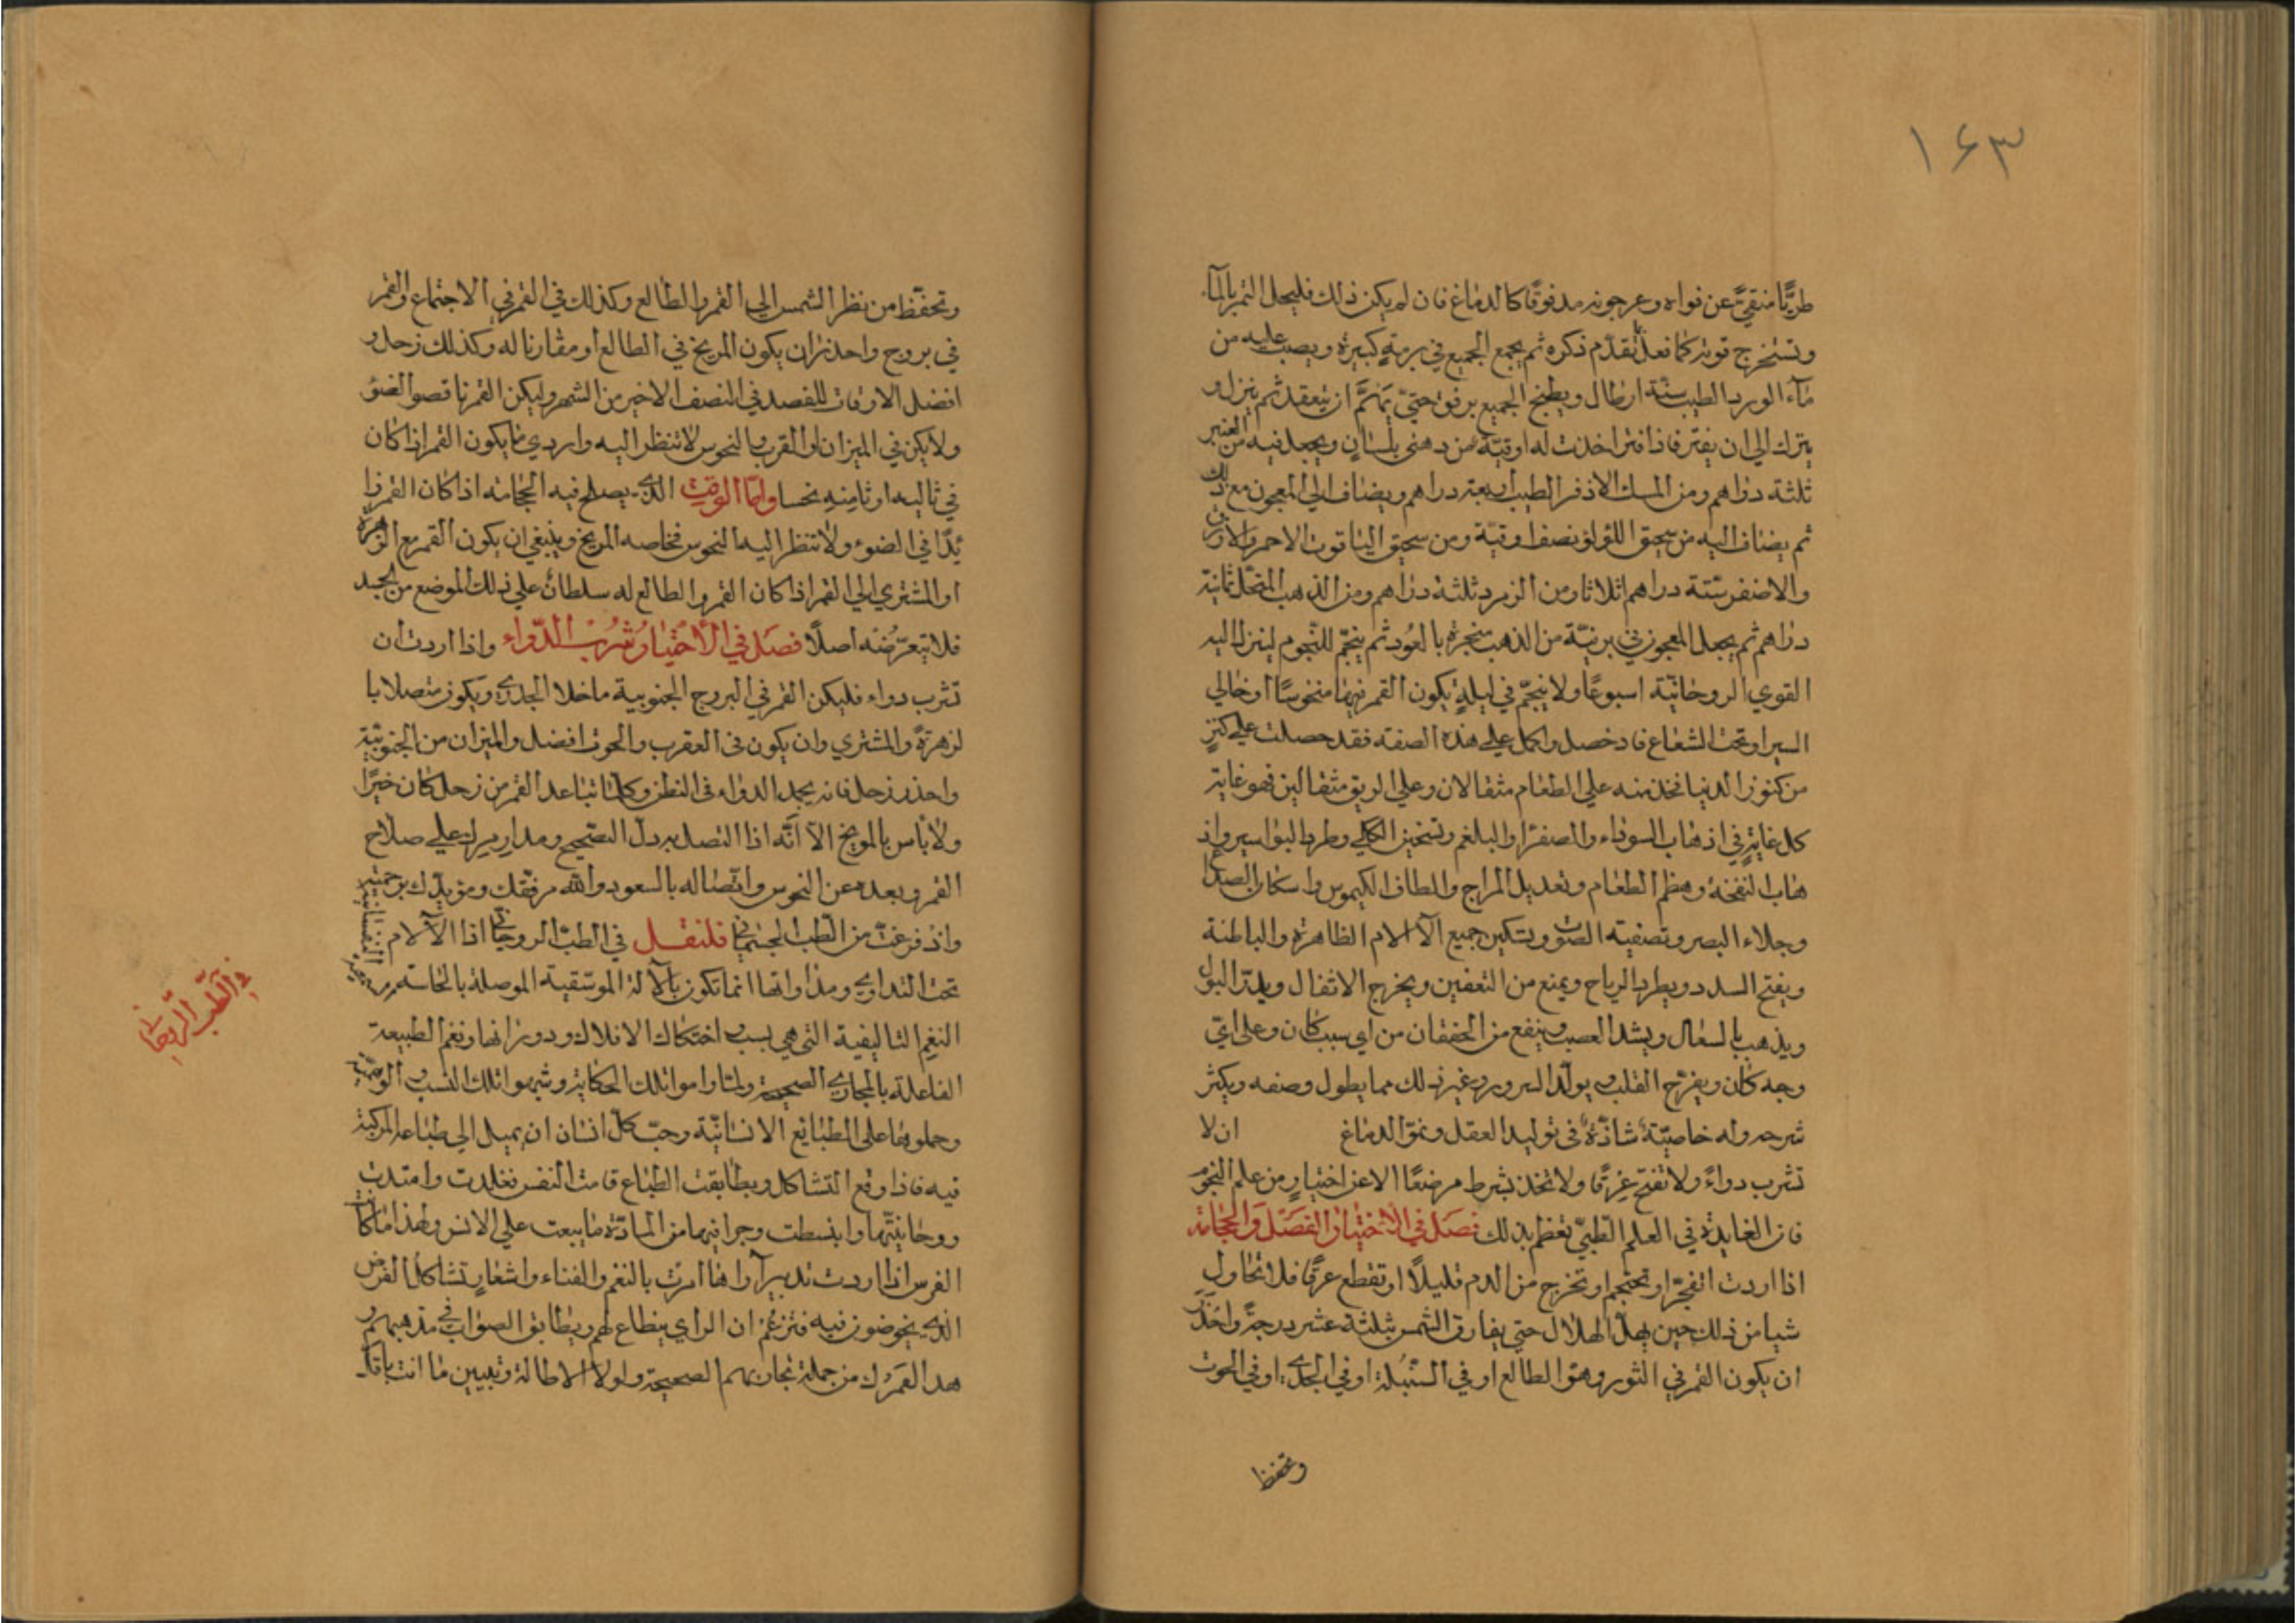 ١٦٣
طريًّا منقيًّ عن نواه وعرجونه مدقوقًا كالدماغ فان لم يكن ذلك فليحل التمر بالمآء
وتستخرج قوته كما فعل بما تقدّم ذكره ثم يجمع الجميع في برمةٍ كبيرة ويصب عليه من
مآء الورد الطيب ستّة ارطال ويطبخ الجميع برفق حتي ان ينعقد ثم ينزل و
يترك الي ان يفتر فاذا فتر اخذت له اوقيّة من دهن بلسانٍ ويجعل فيه من العنبر
ثلثة دراهم ومن المسك الاذفر الطيب اربعة دراهم ويضاف الي المعجون مع ذلك
ثم يضاف اليه من سحيق اللؤلؤ نصف اوقيّة ومن سحيق الياقوت الاحمر والازرق
والاصفر ستة دراهم اثلاثا ومن الزمرد ثلثة دراهم ومن الذهب المنحّل ثمانية
دراهم ثم يجعل المعجون في برنيّة من الذهب مبخرة بالعُود ثم ينجّم للنّجوم لينزل اليه
القوي الروحانيّة اسبوعًا ولا ينجّم في ليلةٍ يكون القمر فيها منحوسًا او خالي
السير او تحت الشعاع فاد خصل واكمل علي هذه الصفة فقد حصلت علي كنزٍ
من كنوز الدنيا تخذ منه علي الطعام مثقالان وعلي الريق مثقالين فهو غاية
كل غايةٍ في اذهاب السوداء والصفرا والبلغم وتسخين الكلي وطرد البواسير واذ
هاب النفخة وهضم الطعام وتعديل المزاج والطاف الكيموس واسكان الصداع
وجلاء البصر وتصفية الصوت وتسكين جميع الآلام الظاهرة والباطنة
ويفتح السدد ويطرد الرياح ويمنع من التعفين ويخرج الاثفال ويدرّ البول
ويذهب بالسعال ويشد العصب وينفع من الخفقان من اي سبب كان وعلي ايّ
وجه كان ويفرّح القلب ويولّد السرور وغير ذلك مما يطول وصفه ويكثر
شرحه وله خاصيّة شاذّة في توليد العقل ونموّ الدماغ ان لا
تشرب دواءً ولا تفتح عرقًا ولا تخذ بشرط مرضعًا الا عن اختيارٍ من علم النجوم
فان الفايدة في العلم الطبيّ تعظم بذلك فصل في الاختيار الفصد والحجامة
اذا اردت اتفجّر او تحتجم او تخرج من الدم قليلًا او تقطع عرقًا فلا تحاول
شيا من ذلك حين يهلّ الهلال حتي يفارق الشمس بثلثة عشر درجةً واحذر
ان يكون القمر في الثور وهو الطالع او في السنبلة او في الجدي او في الحوت
وتحفظ
وتحفّظ من نظر الشمس الي القمر والطالع وكذلك في القمر في الاجتماع والقمر
في بروج واحذر ان يكون المريخ في الطالع او مقارنا له وكذلك زحل و
افضل الاوقات للفصد في النصف الاخير من الشهر وليكن القمر ناقص الضوء
ولا يكن في الميزان او القرب والنحوس لا تنظر اليه واردي ما يكون القمر اذا كان
في ثاليه او ثامنه نحسا وامّا الوقت الذي يصلح فيه الحجامة اذا كان القمر زا
يدًا في الضوء ولا تنظر اليه النحوس فخاصه المريخ وينبغي ان يكون القمر مع الزهرة
او المشتري الي القمر اذا كان القمر والطالع له سلطان علي ذلك الموضع من الجسد
فلا تتعرّضنه اصلًا فصل في الاختيار شرب الدّواء واذا اردت ان
تشرب دواء فليكن القمر في البروج الجنوبية ما خلا الجدي ويكون متصلا با
لزهرة والمشتري وان يكون في العقرب والحوت افضل والميزان من الجنوبيّة
واحذر زحل فانه يجمد الدواء في البطن وكلّما تباعد القمر من زحل كان خيرًا
ولا بأس بالمريخ الا انّه اذا التصل به دل التصحيح ومدار امرك علي صلاح
القمر وبعده عن النحوس واتصاله بالسعود والله مرفّقك ومؤيدك برحمته
واذ فرغت من الطّب الجسماني فلنقل في الطبّ الروحاني اذا الآلام النفسانية
تحت التداوي ومداواتها انما تكون بالآلة الموسّقية الموصلة بالحاسه
في الطّب الرّوحاني
النغم التاليفية التي هي بسبب احتكاك الافلاك ودورانها ونغم الطبيعة
الفاعلة بالمجاري الصحيحة ولمّا راموا تلك الحكاية وشبهوا تلك النسب الوهمية
وحملوها علي الطبايع الانسانيّة وجبّ كلّ انسان ان يميل الي طباعه المركبة
فيه فاذا وقع التشاكل وبطابقت الطباع قامت النفس فغلدت وامتدت
روحانيّتها وانبسطت وجرا فيها من المادّة ما يبعث علي الانس ولهذا ما كانت
الفرس اذا اردت تدبيرآ راها امرت بالنغم والغناء واشعارٍ تشاكل الغرض
الذي يخوضون فيه فتزعم ان الراي ينطاع لهم ويطابق الصواب في مذهبهم و
هدا العمرك من جملة تجاربهم الصحيحة ولولا الاطالة وتبيين ما انت باقلّ